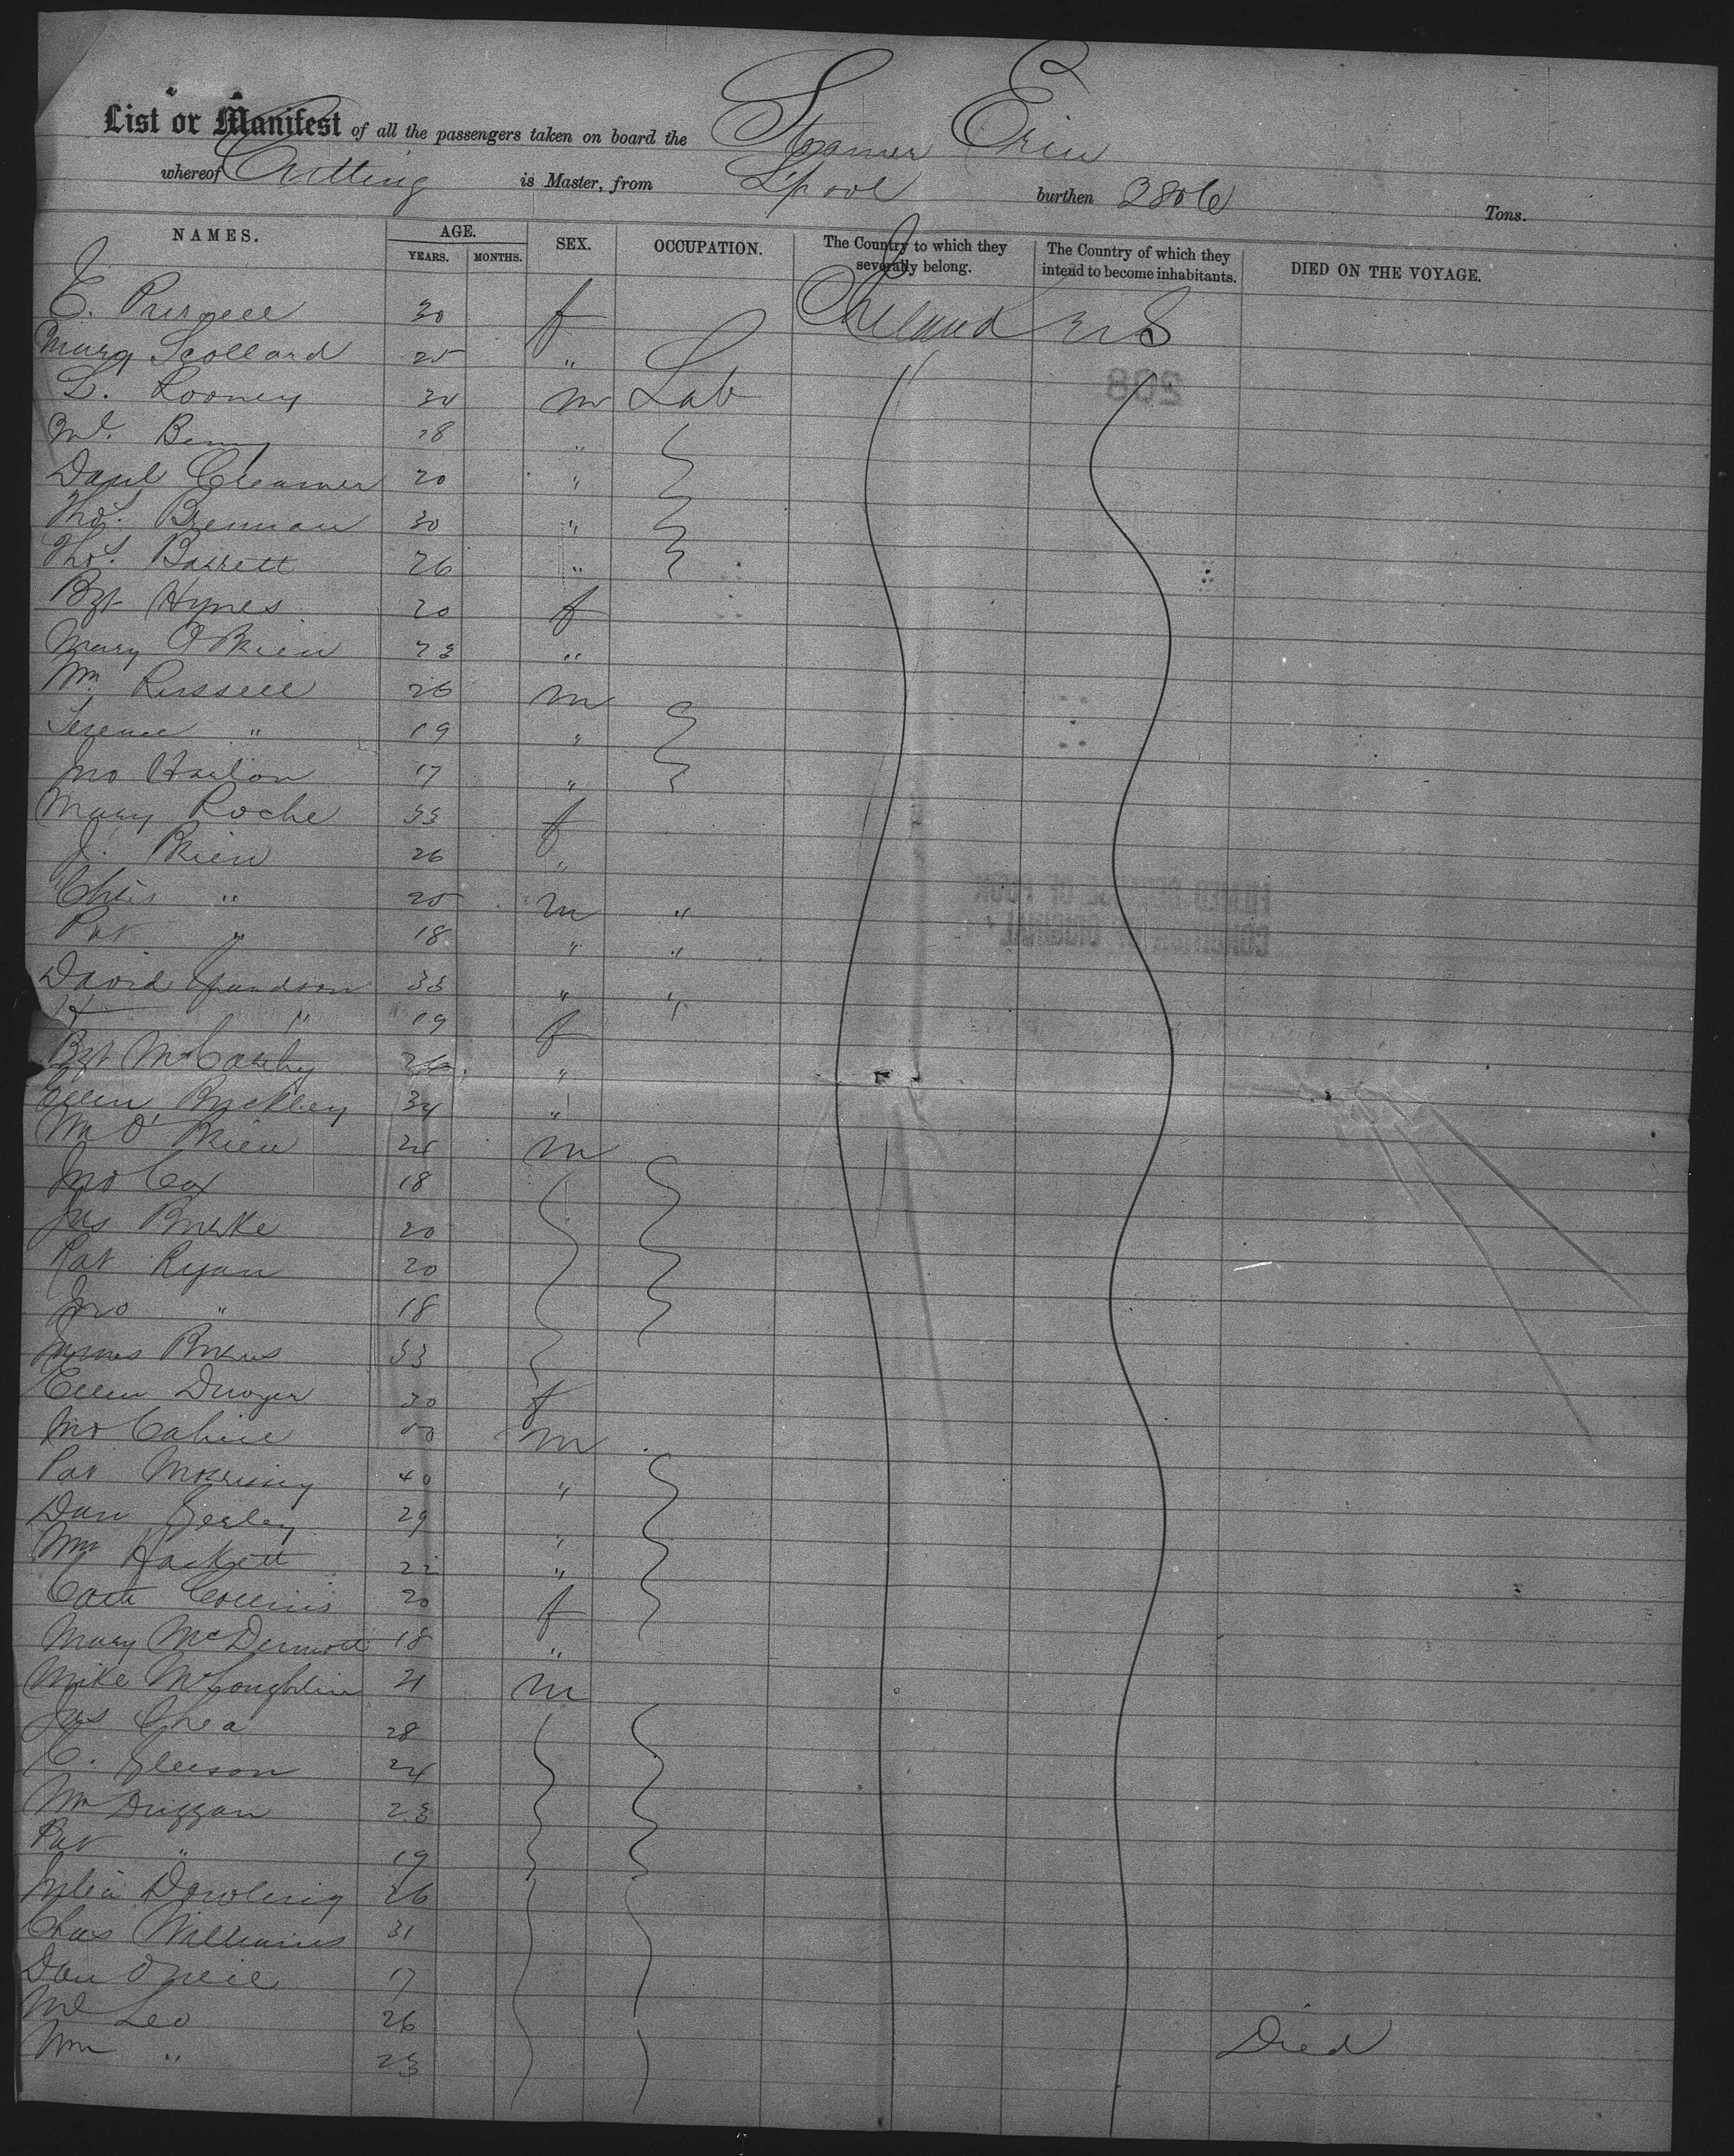 List or Manifest of all the passengers taken on board the Steamer Erin
whereof Cutting is Master, from L'pool burthen 2806 Tons.
NAMES. AGE. SEX. OCCUPATION. The Country to which they severally belong. The Country of which they intend to become inhabitants. DIED ON THE VOYAGE.
YEARS. MONTHS.
E. Pursell 30 f Ireland U S
Mary Scollard 25 "
L. Rooney 34 m Lab
Ml. 28 "
Danl Creamer 20 "
Thos. Brennan 30 "
Thos. Barrett 26 "
Bgt Hynes 20 f
Mary O'Brien 23 "
Wm Russell 26 m
Terence " 19 "
Jno Hanlon 17 "
Mary Roche 33 f
J. Brien 26 "
Chris " 25 m "
Pat " 18 " "
David 33 " "
H " 19 f
Bgt McCarthy "
Ellen Buckley 34 "
Wm O'Brien 24 m
Jno Cox 18
Jas Burke 20
Pat Ryan 20
Jno " 18
James Burns 33
Ellen Dwyer 30 f
Jno Cahill 50 m
Pat Morrissy 40 "
Dan 29 "
Wm Hackett 22 "
Cath Collins 20 f
Mary McDermott 18 "
Mike McLoughlin 21 m
Jas Shea 28
C. Gleeson 24
Wm Duggan 23
Pat " 19
Julia Dowling 26
Chas Williams 31
Dan O'Neil 17
Ml Leo 26
Wm " 23 Died
208
FILMED BECAUSE OF POOR
CONDITION OF ORIGINAL